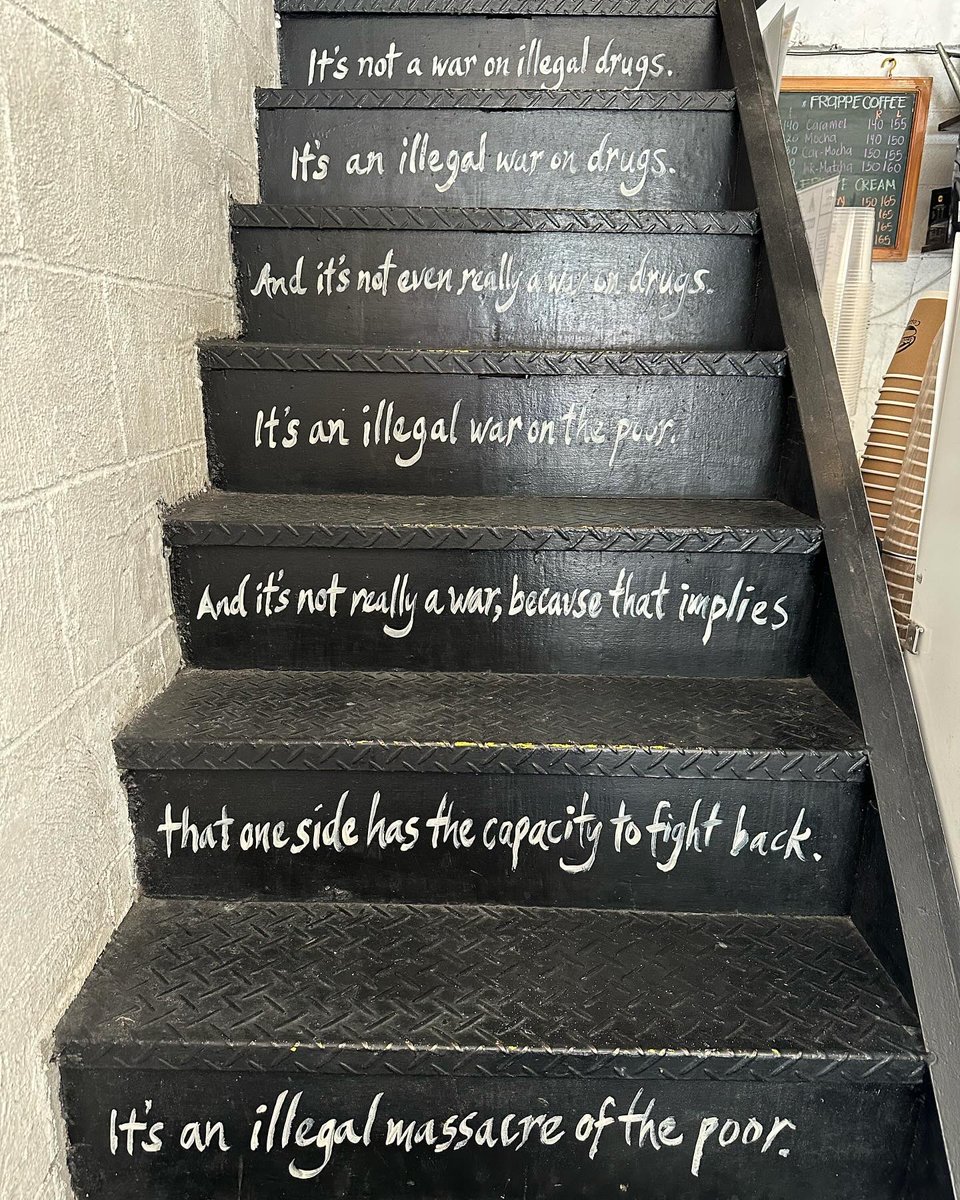 It's not a war on illegal drugs.
It's an illegal war on drugs.
And it's not even really a war on drugs.
It's an illegal war on the poor.
And it's not really a war, because that implies
that one side has the capacity to fight back.
It's an illegal massacre of the poor.
FRAPPE COFFEE
R L
140 Caramel 140 155
Mocha 140 150
Car-Mocha 150 155
150 160
CREAM
150 165
165
165
165